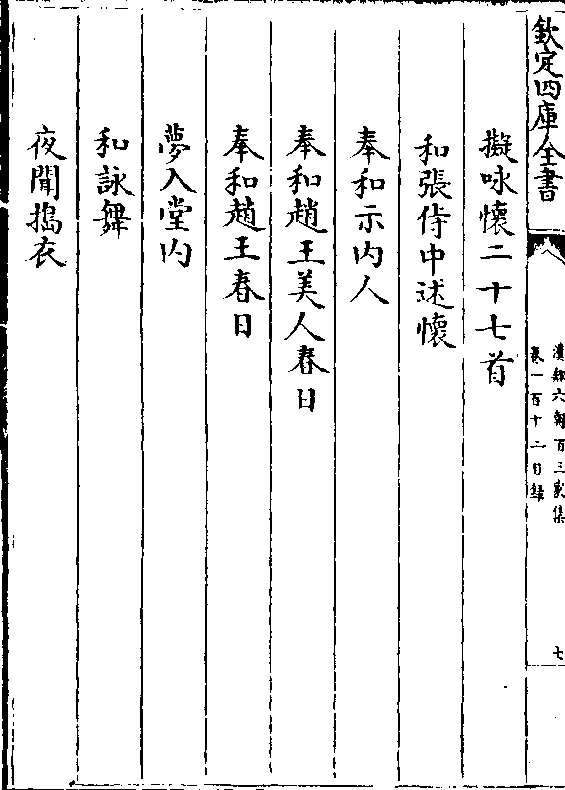 欽定四庫全書
漢魏六朝百三家集
卷一百十二目録
七
擬咏懷二十七首
和張侍中述懷
奉和示內人
奉和趙王美人春日
奉和趙王春日
夢入堂內
和詠舞
夜聞搗衣